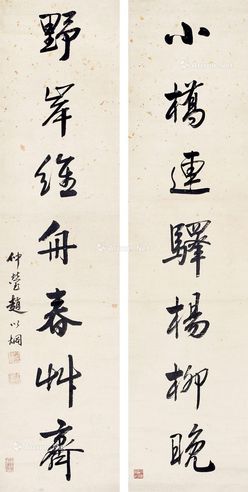 小橋連驛楊柳晚
野岸維舟春艸齊
仲瑩趙以炯